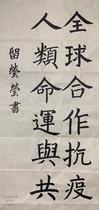 全球合作抗疫
人類命運與共
留瑩瑩書